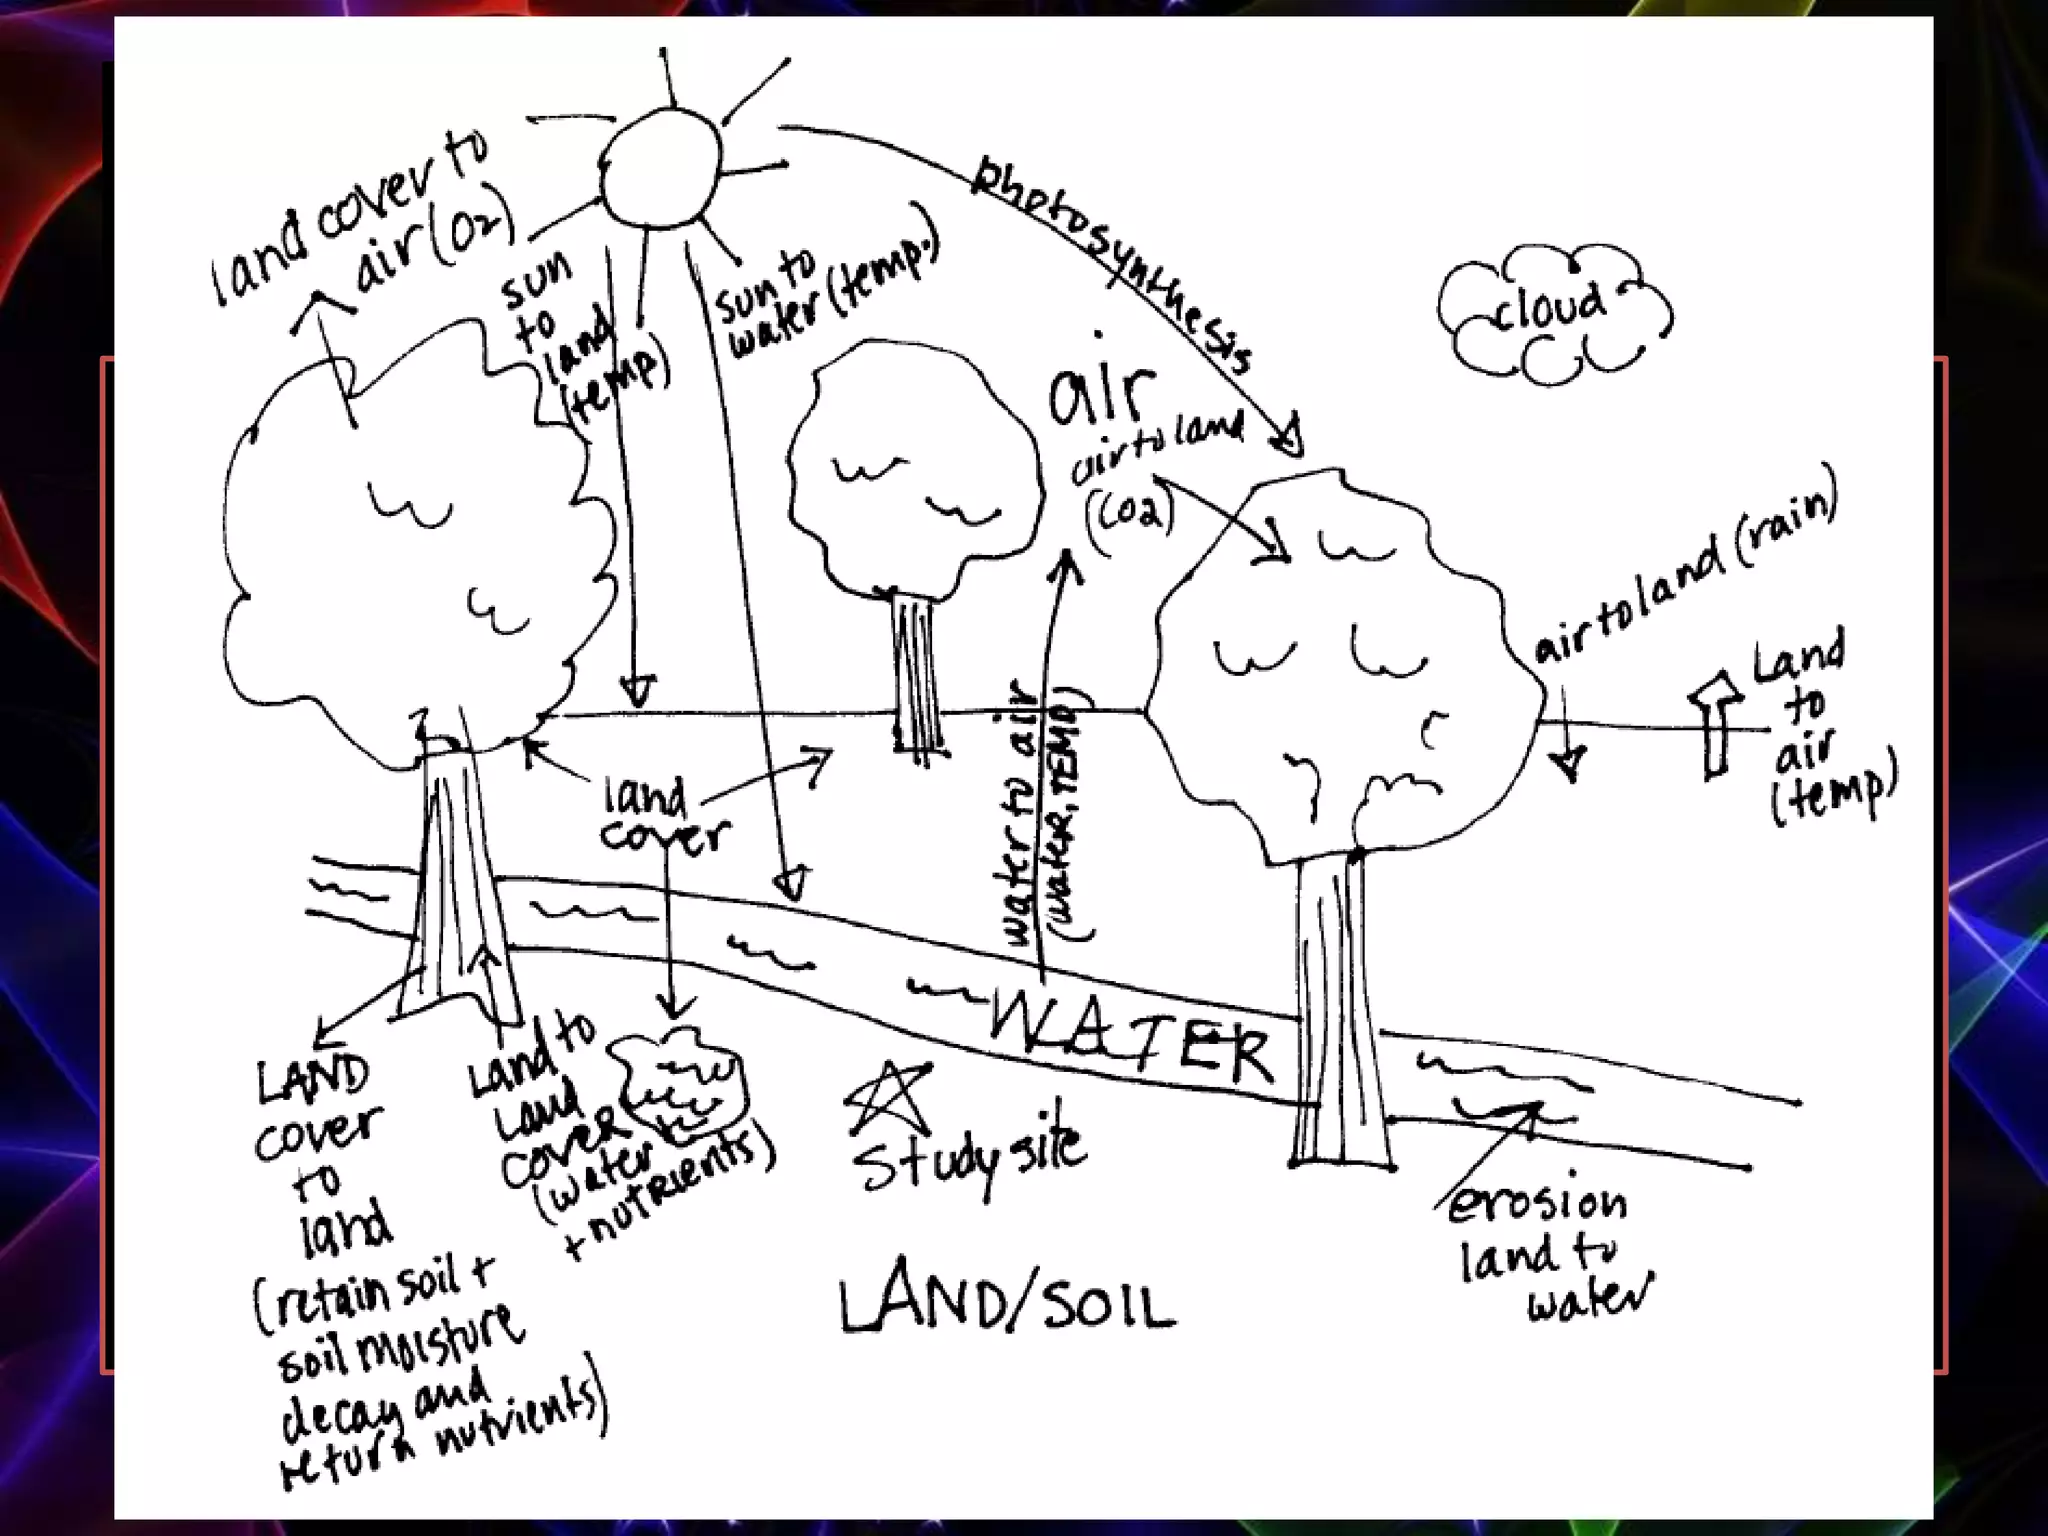 land cover to
air (O2)
sun
to
land
(temp)
sun to
water (temp.)
photosynthesis
cloud
air
air to land
(CO2)
air to land (rain)
Land
to
air
(temp)
land
cover
water to air
(WATER, TEMP)
WATER
LAND
cover
to
land
(retain soil +
soil moisture
decay and
return nutrients)
Land to
Land
COVER
(water
+ nutrients)
Study site
erosion
land to
water
LAND/SOIL